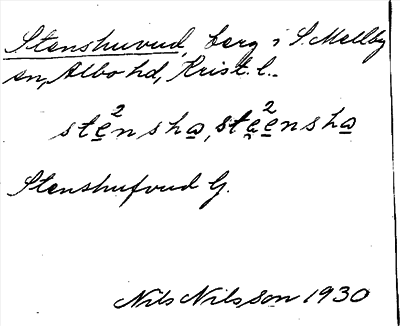 Stenshuvud, berg i S. Mellby
sn, Albo hd, Krist. l.
ste²nsha, stee²nsha
Stenshufvud G.
Nils Nilsson 1930